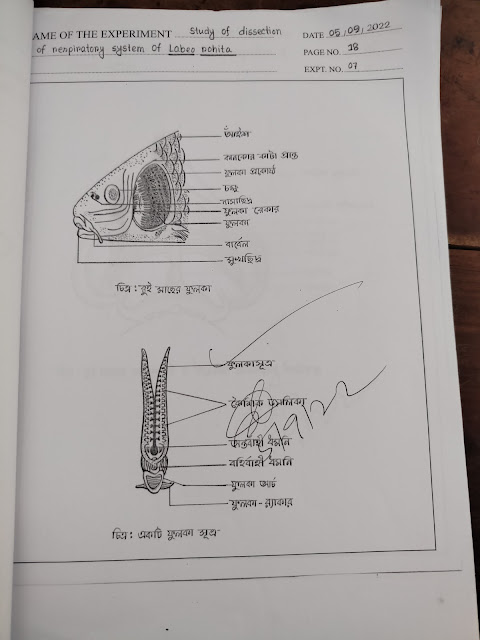 NAME OF THE EXPERIMENT Study of dissection
of respiratory system of Labeo rohita
DATE 05/09/2022
PAGE NO. 18
EXPT. NO. 07
আঁইশ
কানকোর কাটা প্রান্ত
ফুলকা প্রকোষ্ঠ
চক্ষু
নাসাছিদ্র
ফুলকা রেকার
ফুলকা
বার্বেল
মুখছিদ্র
চিত্র : রুই মাছের ফুলকা
ফুলকাসূত্র
কৈশিক
ধমনি
বহির্বাহী ধমনি
ফুলকা আর্চ
ফুলকা - র‍্যাকার
চিত্র : একটি ফুলকা সূত্র